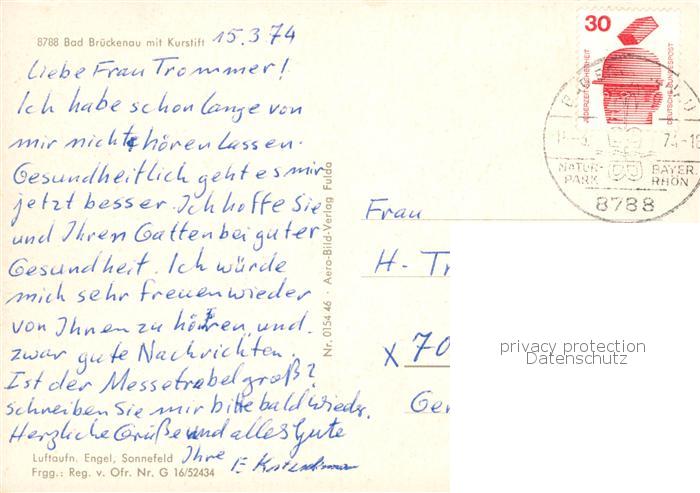 8788 Bad Brückenau mit Kurstift
15.3.74
Liebe Frau Trommer!
Ich habe schon lange von
mir nicht hören lassen.
Gesundheitlich geht es mir
jetzt besser. Ich hoffe Sie
und Ihren Gatten bei guter
Gesundheit. Ich würde
mich sehr freuen wieder
von Ihnen zu hören, und
zwar gute Nachrichten.
Ist der Messetrubel groß?
schreiben Sie mir bitte bald wieder.
Herzliche Grüße und alles Gute
Ihre
Luftaufn. Engel, Sonnefeld
Frgg.: Reg. v. Ofr. Nr. G 16/52434
Nr. 0154 46 · Aero-Bild-Verlag Fulda
30
JEDERZEIT SICHERHEIT
DEUTSCHE BUNDESPOST
74-18
NATUR-
PARK
BAYER.
RHÖN
8788
Frau
H. Tr
X 70
Ger
privacy protection
Datenschutz